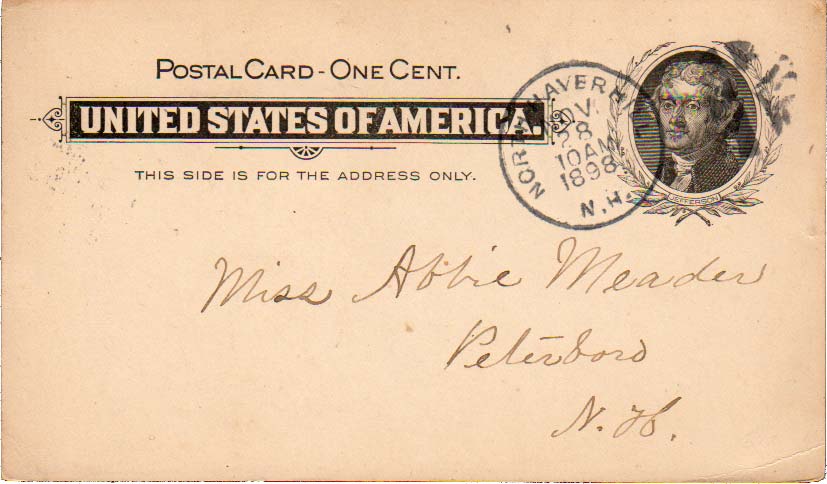 POSTAL CARD - ONE CENT.
UNITED STATES OF AMERICA.
THIS SIDE IS FOR THE ADDRESS ONLY.
NORTH HAVERHILL
NOV.
28
10AM
1898
N.H.
JEFFERSON
Miss Abbie Meader
Peterboro
N. H.